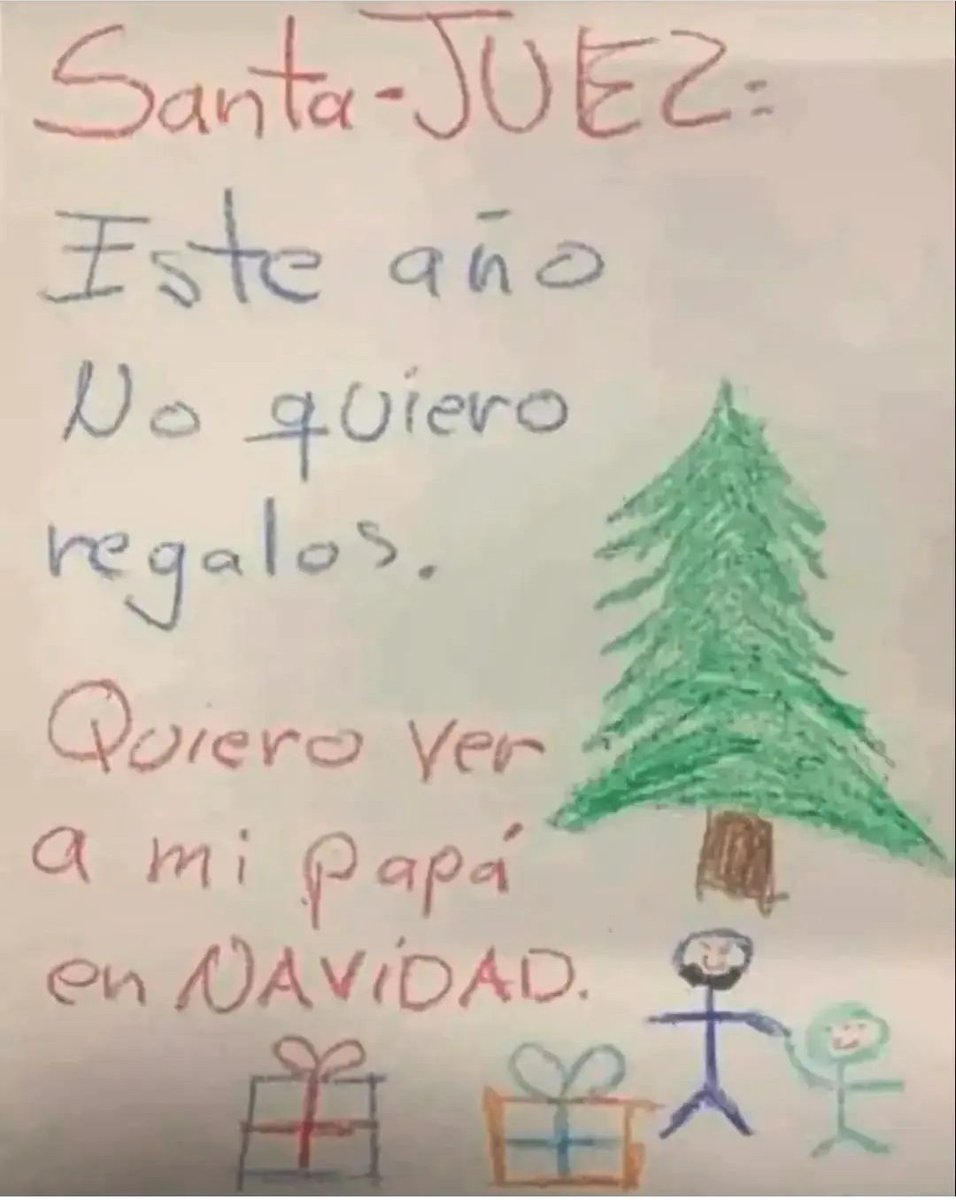 Santa-JUEZ:
Este año
No quiero
regalos.
Quiero ver
a mi papá
en NAViDAD.